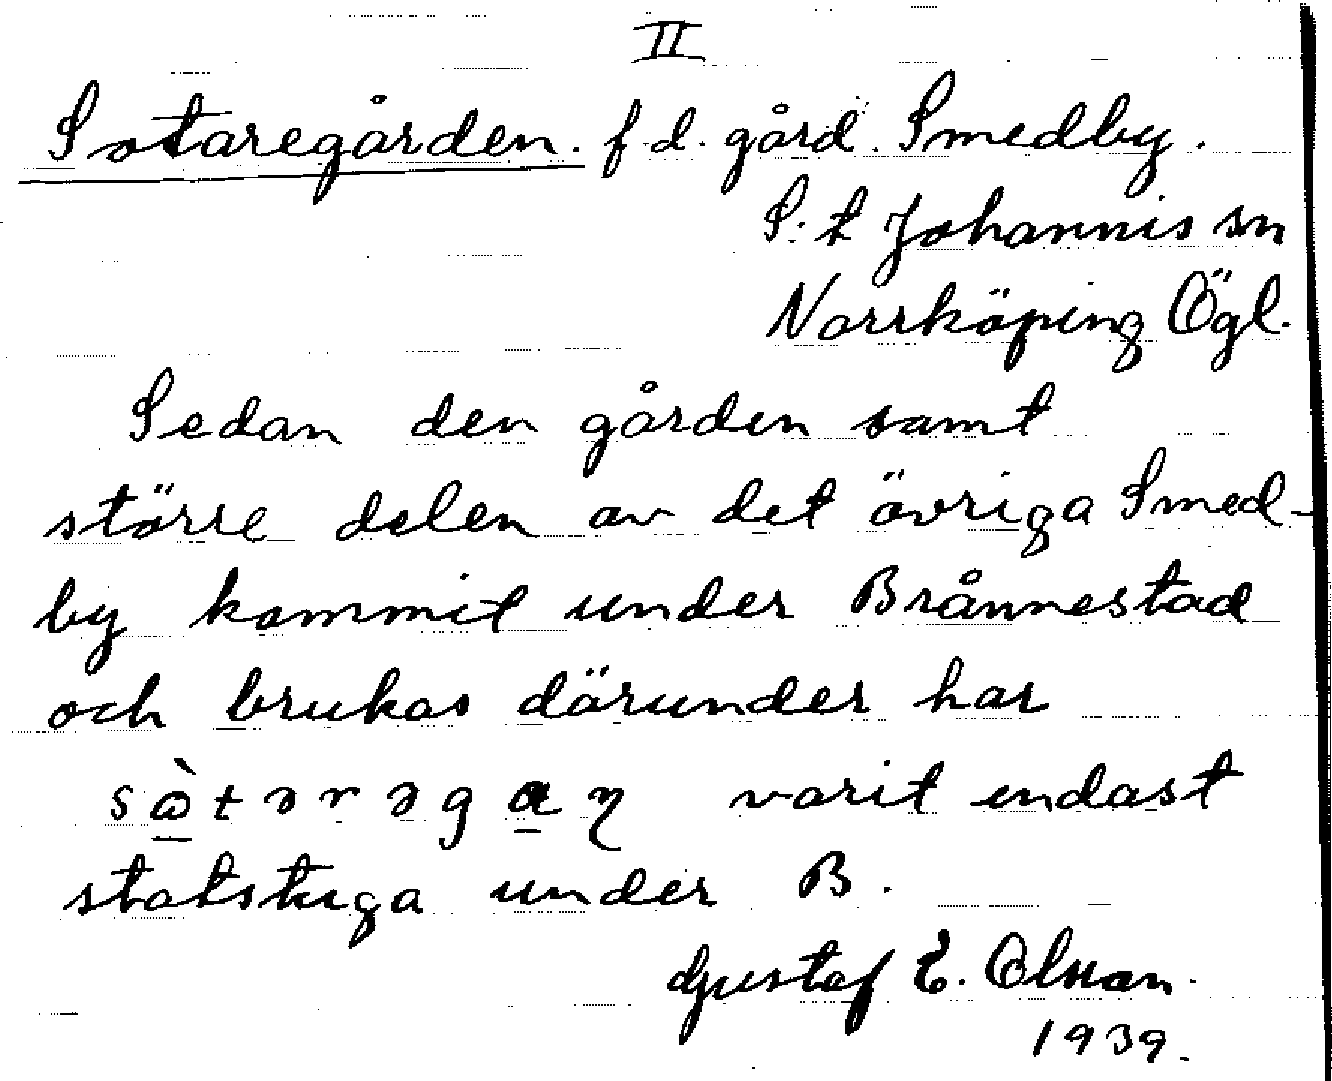 II
Sotaregården. f.d. gård. Smedby.
S:t Johannis sn
Norrköping Ögl.
Sedan den gården samt
större delen av det övriga Smed-
by kommit under Brånnestad
och brukas därunder har
sò̱tərəga̱ɳ varit endast
statstuga under B.
Gustaf E. Olsson.
1939.